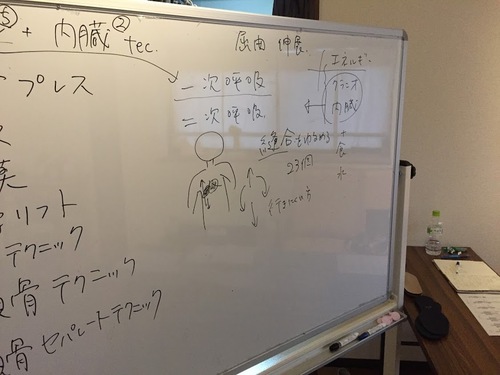 ⑤
+ 内臓② tec.
プレス
リフト
テクニック
骨 テクニック
骨 セパレートテクニック
屈曲 伸展
一次呼吸
二次呼吸
縫合をゆるめる
23個
行きにくい方
エネルギー
クラニオ
内臓
食
水